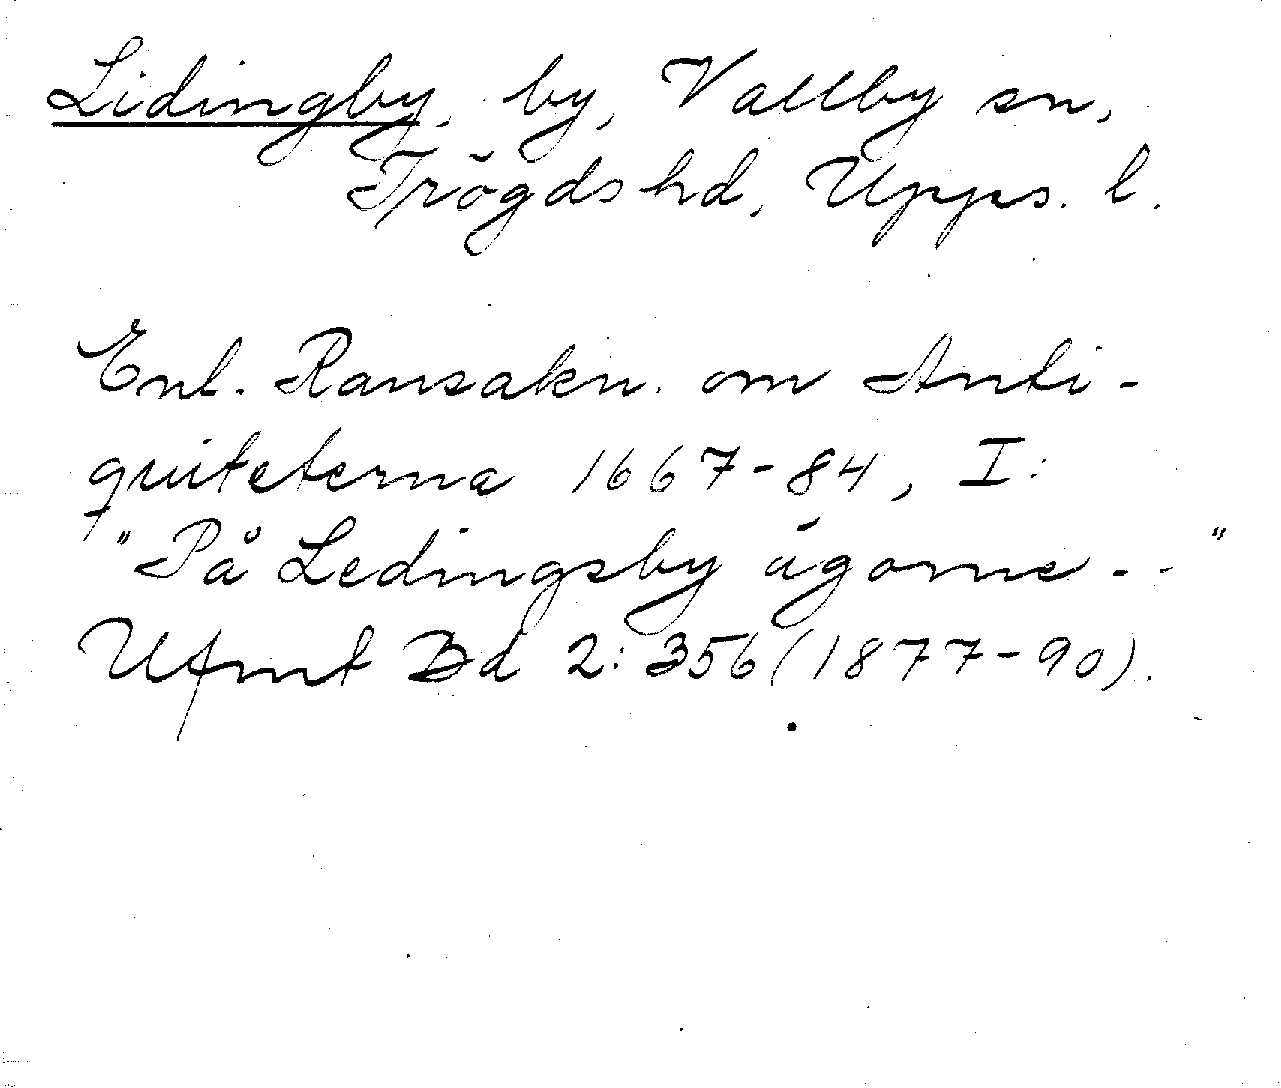 Lidingby, by, Vallby sn,
Trögds hd, Upps. l.
Enl. Ransakn. om Anti-
quiteterna 1667-84, I:
"På Ledingsby ägorne -- "
Ufmt Bd 2: 356 (1877-90).